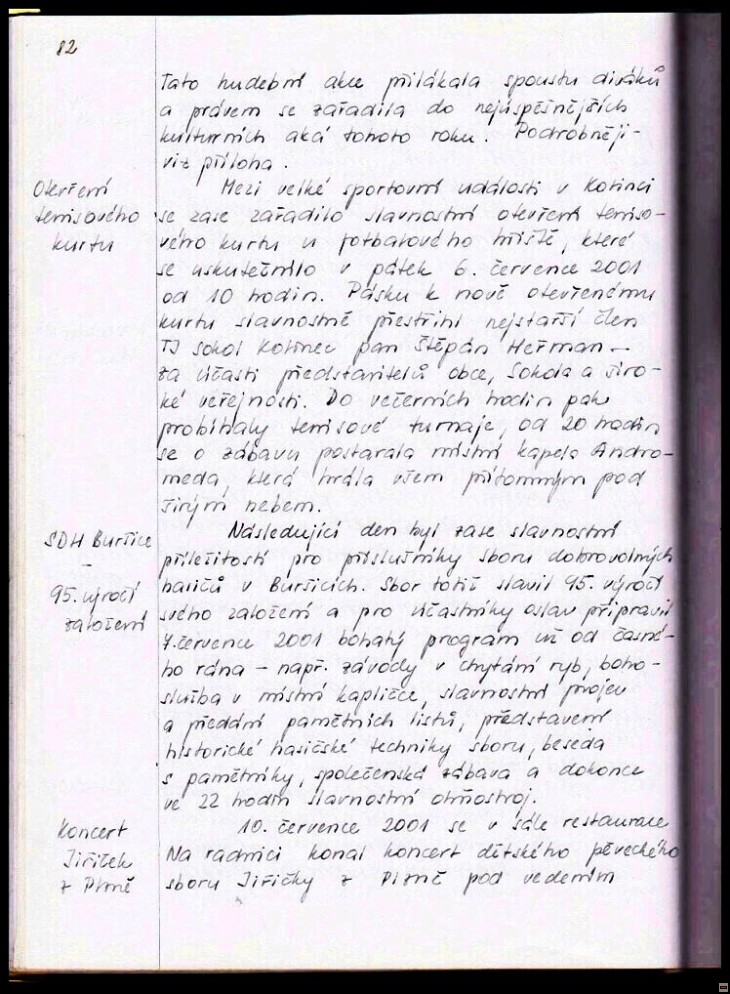 82
Tato hudební akce přilákala spoustu diváků
a právem se zařadila do nejúspěšnějších
kulturních akcí tohoto roku. Podrobněji -
viz příloha.
Otevření
tenisového
kurtu
Mezi velké sportovní události v Kolinci
se zase zařadilo slavnostní otevření teniso-
vého kurtu u fotbalového hřiště, které
se uskutečnilo v pátek 6. července 2001
od 10 hodin. Pásku k nově otevřenému
kurtu slavnostně přestřihl nejstarší člen
TJ Sokol Kolinec pan Štěpán Heřman -
za účasti představitelů obce, Sokola a širo-
ké veřejnosti. Do večerních hodin pak
probíhaly tenisové turnaje, od 20 hodin
se o zábavu postarala místní kapela Andro-
meda, která hrála všem přítomným pod
širým nebem.
SDH Buršice
-
95. výročí
založení
Následující den byl zase slavnostní
příležitostí pro příslušníky sboru dobrovolných
hasičů v Buršicích. Sbor totiž slavil 95. výročí
svého založení a pro účastníky oslav připravil
7. července 2001 bohatý program už od časné-
ho rána - např. závody v chytání ryb, boho-
služba v místní kapličce, slavnostní projev
a předání pamětních listů, představení
historické hasičské techniky sboru, beseda
s pamětníky, společenská zábava a dokonce
ve 22 hodin slavnostní ohňostroj.
Koncert
Jiřiček
z Plzně
10. července 2001 se v sále restaurace
Na radnici konal koncert dětského pěveckého
sboru Jiřičky z Plzně pod vedením